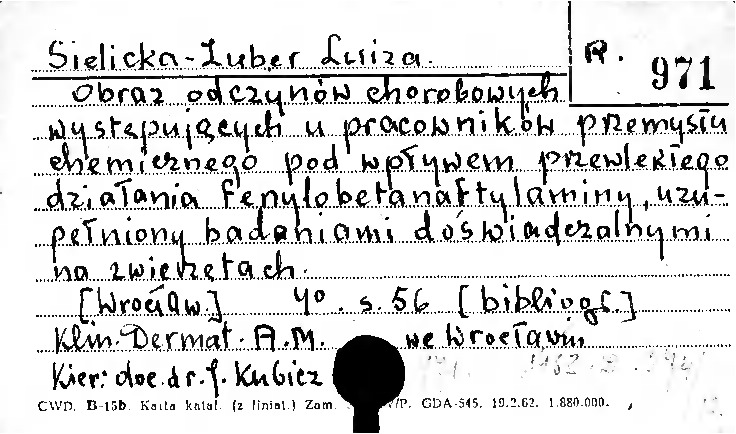 Sielicka-Zuber Luiza.
R. 971
Obraz odczynów chorobowych
występujących u pracowników przemysłu
chemicznego pod wpływem przewlekłego
działania fenylobetanaftylaminy, uzu-
pełniony badaniami doświadczalnymi
na zwierzętach.
[Wrocław.] 4°. s. 56 [bibliogr.]
Klin. Dermat. A.M. we Wrocławiu
Kier: doc. dr. J. Kubicz
CWD. B-15b. Karta katal. (z liniat.) Zam. GDA-545. 19.2.62. 1.880.000.